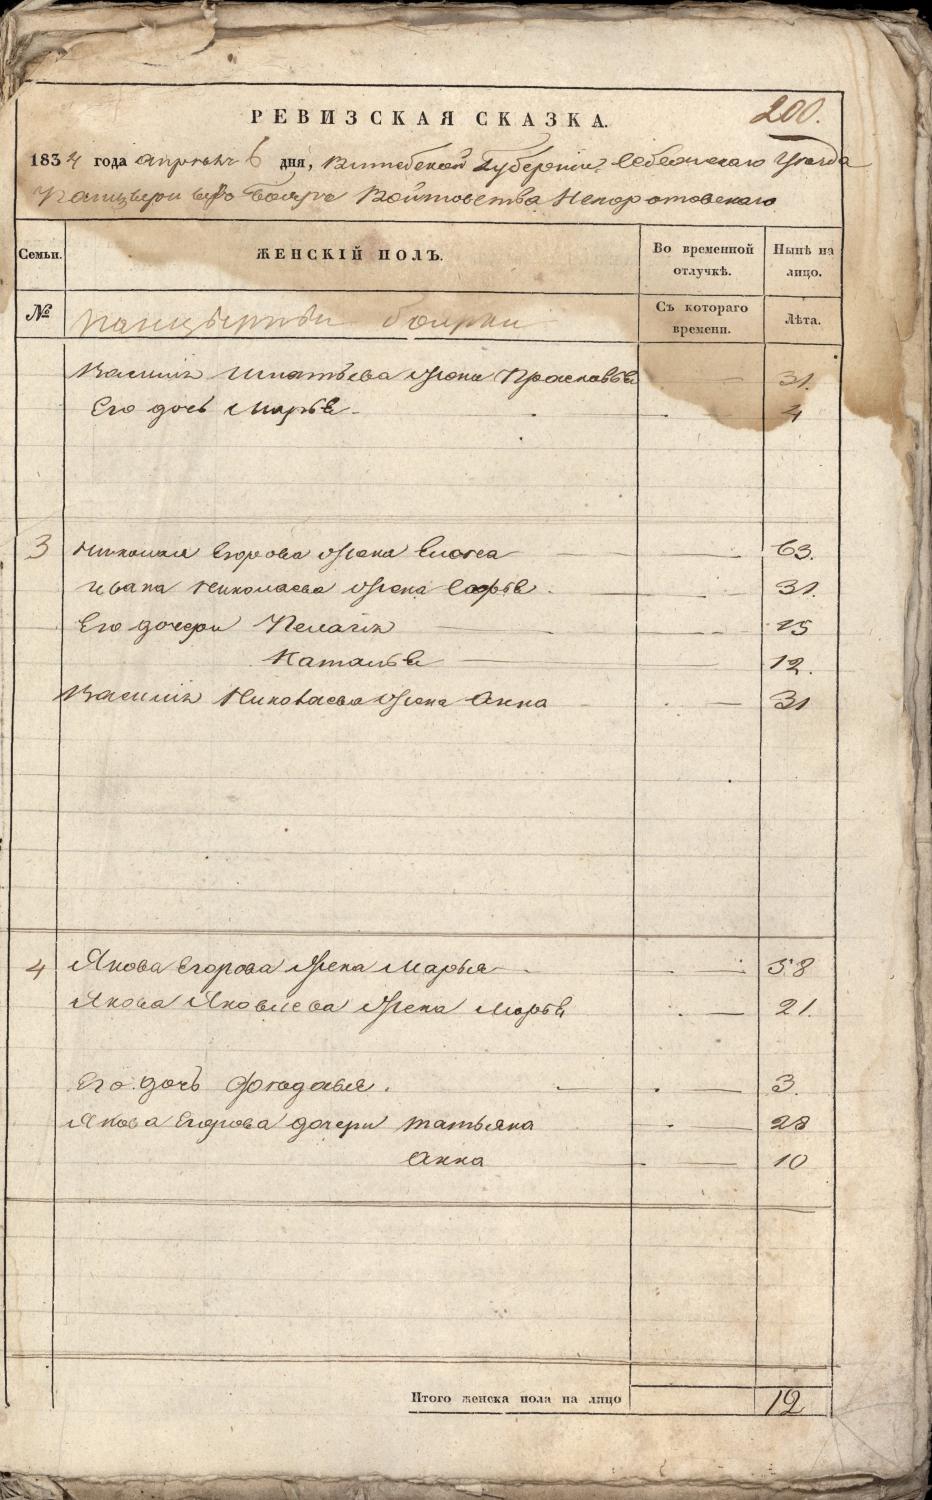 200.
РЕВИЗСКАЯ СКАЗКА.
1834 года апреля 6 дня, Витебской Губернии Себежскаго Уезда
Бояре Войтовства Непоротовскаго
Семьи. ЖЕНСКІЙ ПОЛЪ. Во временной отлучкѣ. Нынѣ на лицо.
№ панцырныи боярки Съ котораго времени. Лѣта.
Василія Игнатьева жена Прасковья 31.
Его дочь Марья 4
3 Николая Егорова жена 63.
Ивана Николаева жена Софья 31.
Его дочери Пелагія 15
Наталья 12.
Василія Николаева жена Анна 31
4 Якова Егорова жена Марья 58
Якова Яковлева жена Марья 21.
Его дочь 3.
Якова Егорова дочери Татьяна 28
Анна 10
Итого женска пола на лицо 12